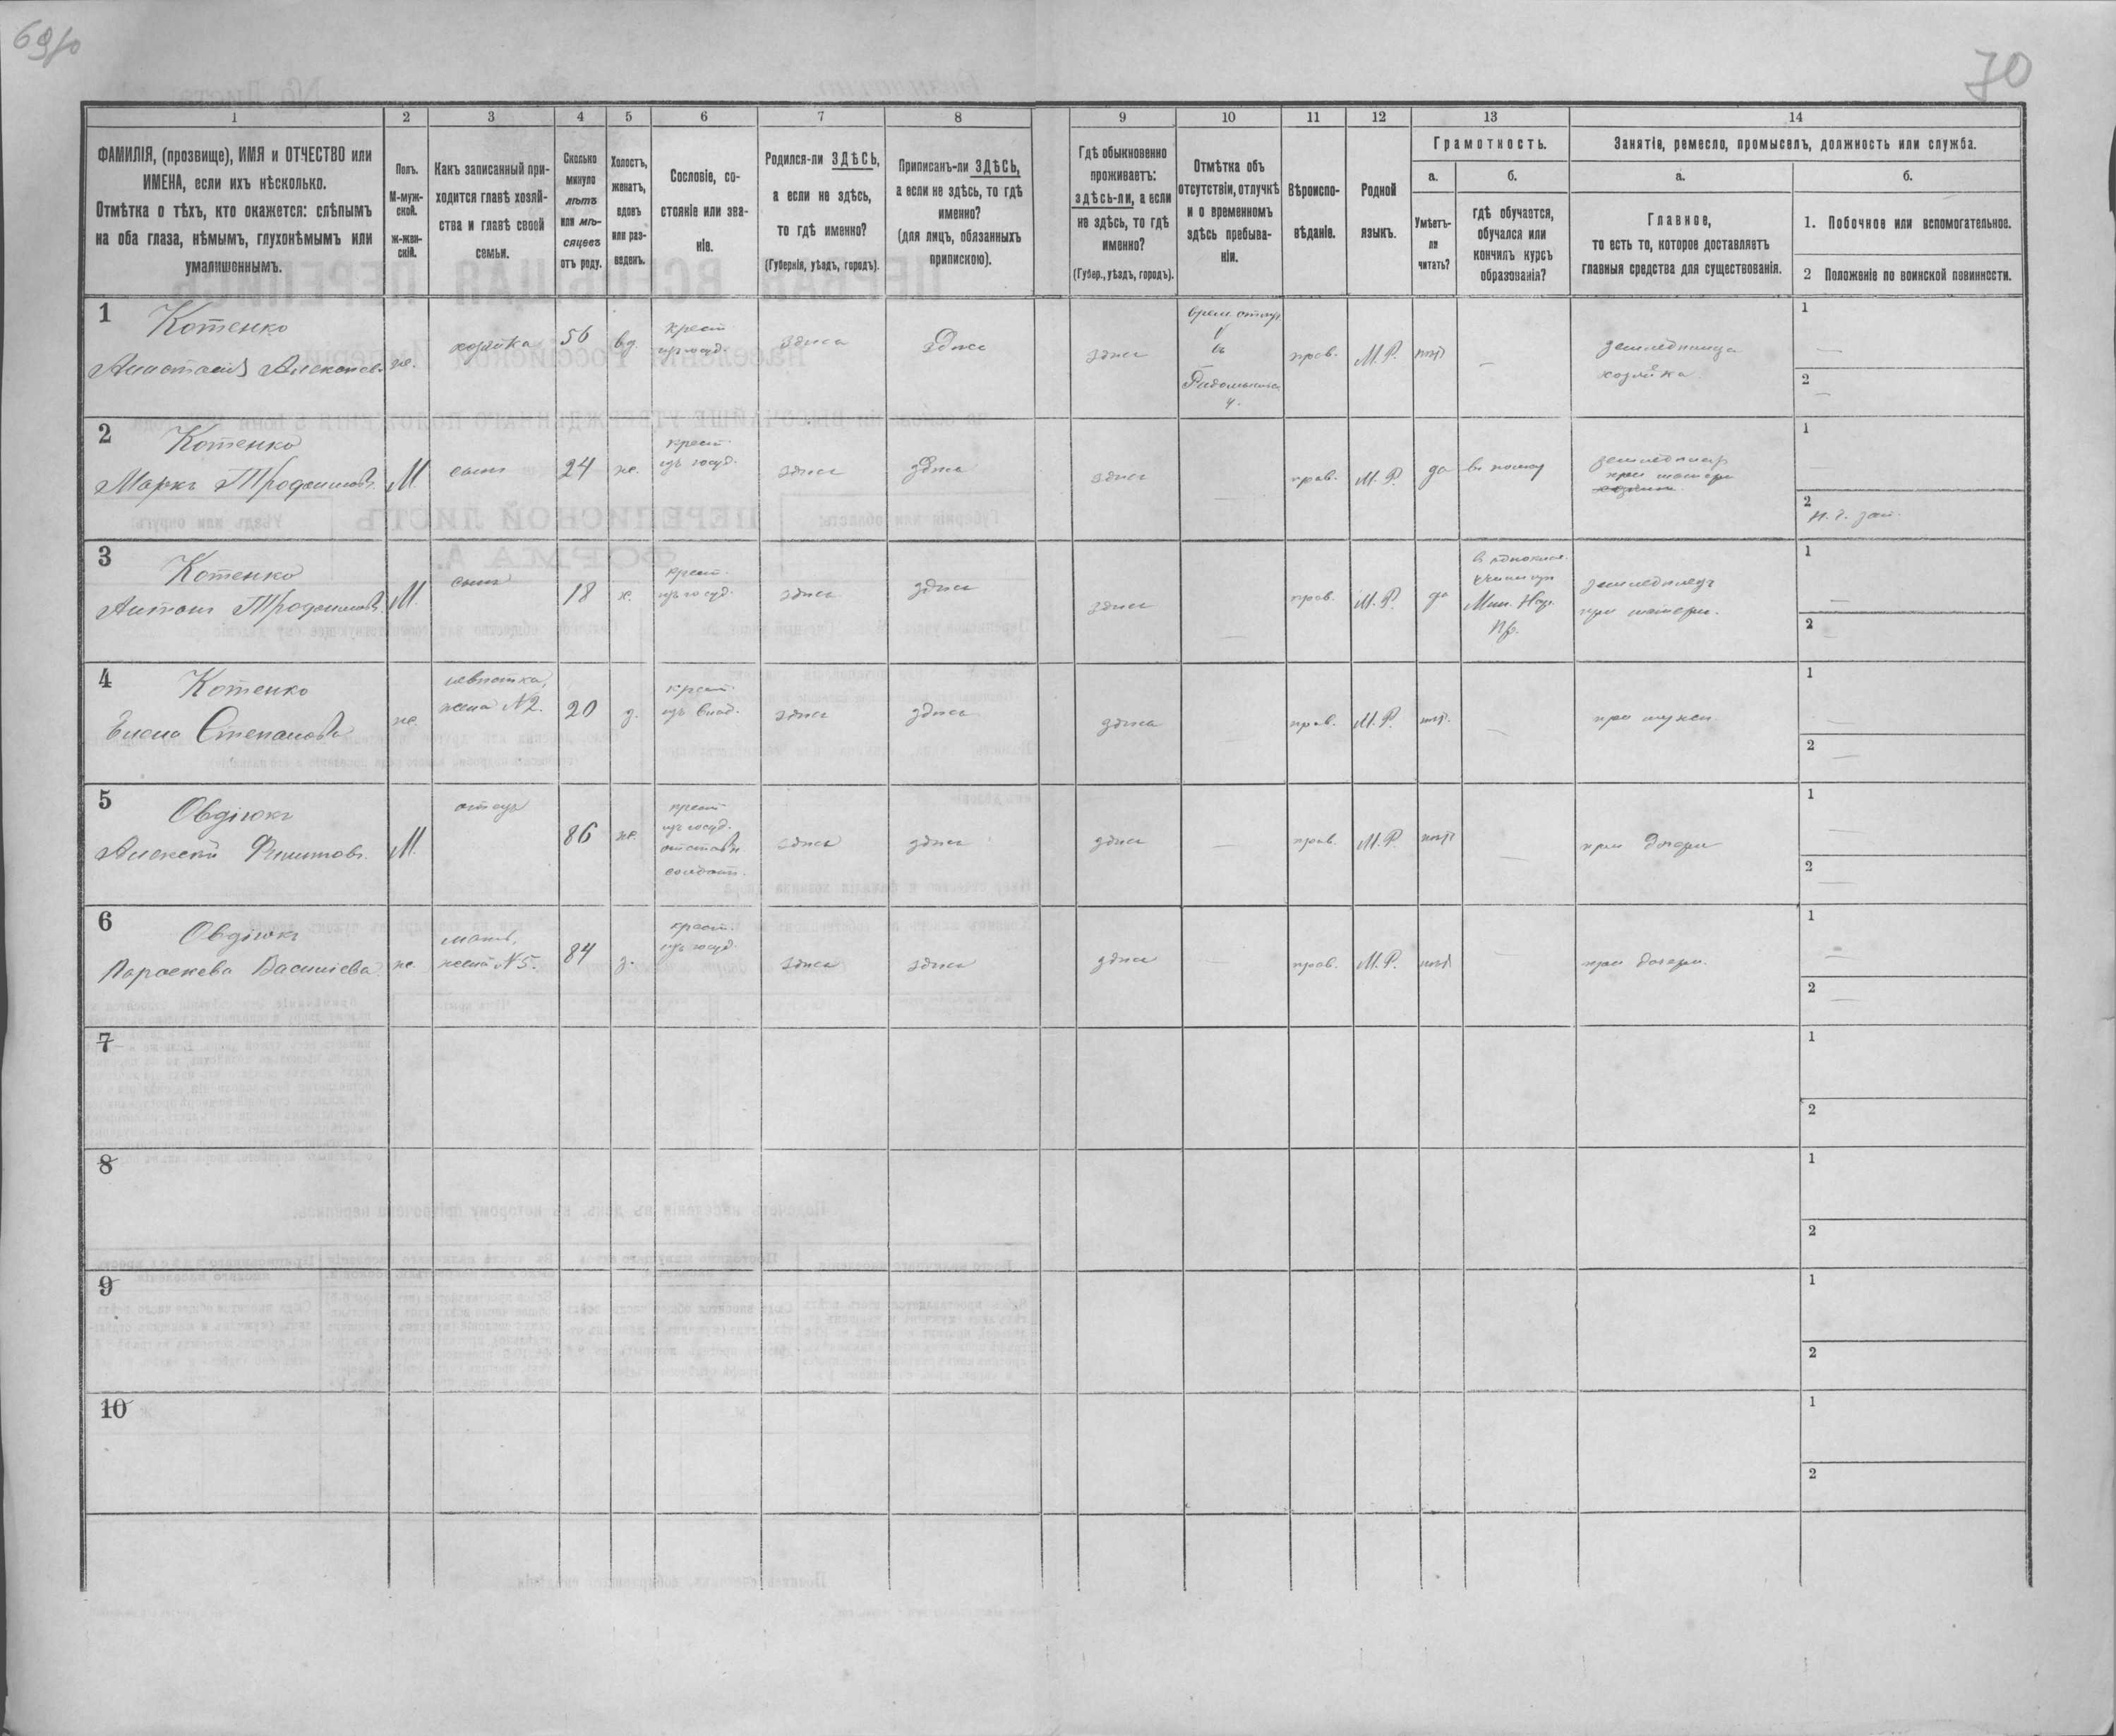 69/10
70
1
2
3
4
5
6
7
8
9
10
11
12
13
14
ФАМИЛІЯ, (прозвище), ИМЯ и ОТЧЕСТВО или
ИМЕНА, если ихъ нѣсколько.
Отмѣтка о тѣхъ, кто окажется: слѣпымъ
на оба глаза, нѣмымъ, глухонѣмымъ или
умалишеннымъ.
Полъ.
М-муж-
ской.
ж-жен-
скій.
Какъ записанный при-
ходится главѣ хозяй-
ства и главѣ своей
семьи.
Сколько
минуло
лѣтъ
или мѣ-
сяцевъ
отъ роду.
Холостъ,
женатъ,
вдовъ
или раз-
веденъ.
Сословіе, со-
стояніе или зва-
ніе.
Родился-ли ЗДѢСЬ,
а если не здѣсь,
то гдѣ именно?
(Губернія, уѣздъ, городъ).
Приписанъ-ли ЗДѢСЬ,
а если не здѣсь, то гдѣ
именно?
(для лицъ, обязанныхъ
припискою).
Гдѣ обыкновенно
проживаетъ:
здѣсь-ли, а если
не здѣсь, то гдѣ
именно?
(Губер., уѣздъ, городъ).
Отмѣтка объ
отсутствіи, отлучкѣ
и о временномъ
здѣсь пребыва-
ніи.
Вѣроиспо-
вѣданіе.
Родной
языкъ.
Грамотность.
а.
Умѣетъ-
ли
читать?
б.
гдѣ обучается,
обучался или
кончилъ курсъ
образованія?
Занятіе, ремесло, промыселъ, должность или служба.
а.
Главное,
то есть то, которое доставляетъ
главныя средства для существованія.
б.
1. Побочное или вспомогательное.
2 Положеніе по воинской повинности.
1
Котенко
Анастасія Алексѣев.
же.
хозяйка
56
вд.
крест
изъ госуд.
здѣсь
здѣсь
здѣсь
врем. отлуч.
въ
прав.
М.Р.
нѣтъ
—
земледѣлица
хозяйка
1
—
2
—
2
Котенко
Маркъ Трофимовъ.
М.
сынъ
24
же.
крест.
изъ госуд.
здѣсь
здѣсь
здѣсь
—
прав.
М.Р.
да
земледѣлецъ
при матери
1
—
2
3
Котенко
Антонъ Трофимовъ.
М.
сынъ
18
х.
крест.
изъ госуд.
здѣсь
здѣсь
здѣсь
—
прав.
М.Р.
да
в однокласс.
училищѣ
Мин. Нар.
Пр.
земледѣлецъ
при матери.
1
—
2
—
4
Котенко
Елена Степанова
же.
невѣстка,
жена №2.
20
з.
крест.
изъ влад.
здѣсь
здѣсь
здѣсь
—
прав.
М.Р.
нѣтъ.
—
при мужѣ
1
—
2
—
5
Овдіюкъ
Алексѣй Филиповъ.
М.
отецъ
86
же.
крест
изъ госуд.
отставн.
солдат.
здѣсь
здѣсь
здѣсь
—
прав.
М.Р.
нѣтъ
—
при дочери
1
—
2
—
6
Овдіюкъ
Параскева Васильева
же.
мать,
жена №5.
84
з.
крест.
изъ госуд.
здѣсь
здѣсь
здѣсь
—
прав.
М.Р.
нѣтъ
—
при дочери.
1
—
2
—
7
1
2
8
1
2
9
1
2
10
1
2